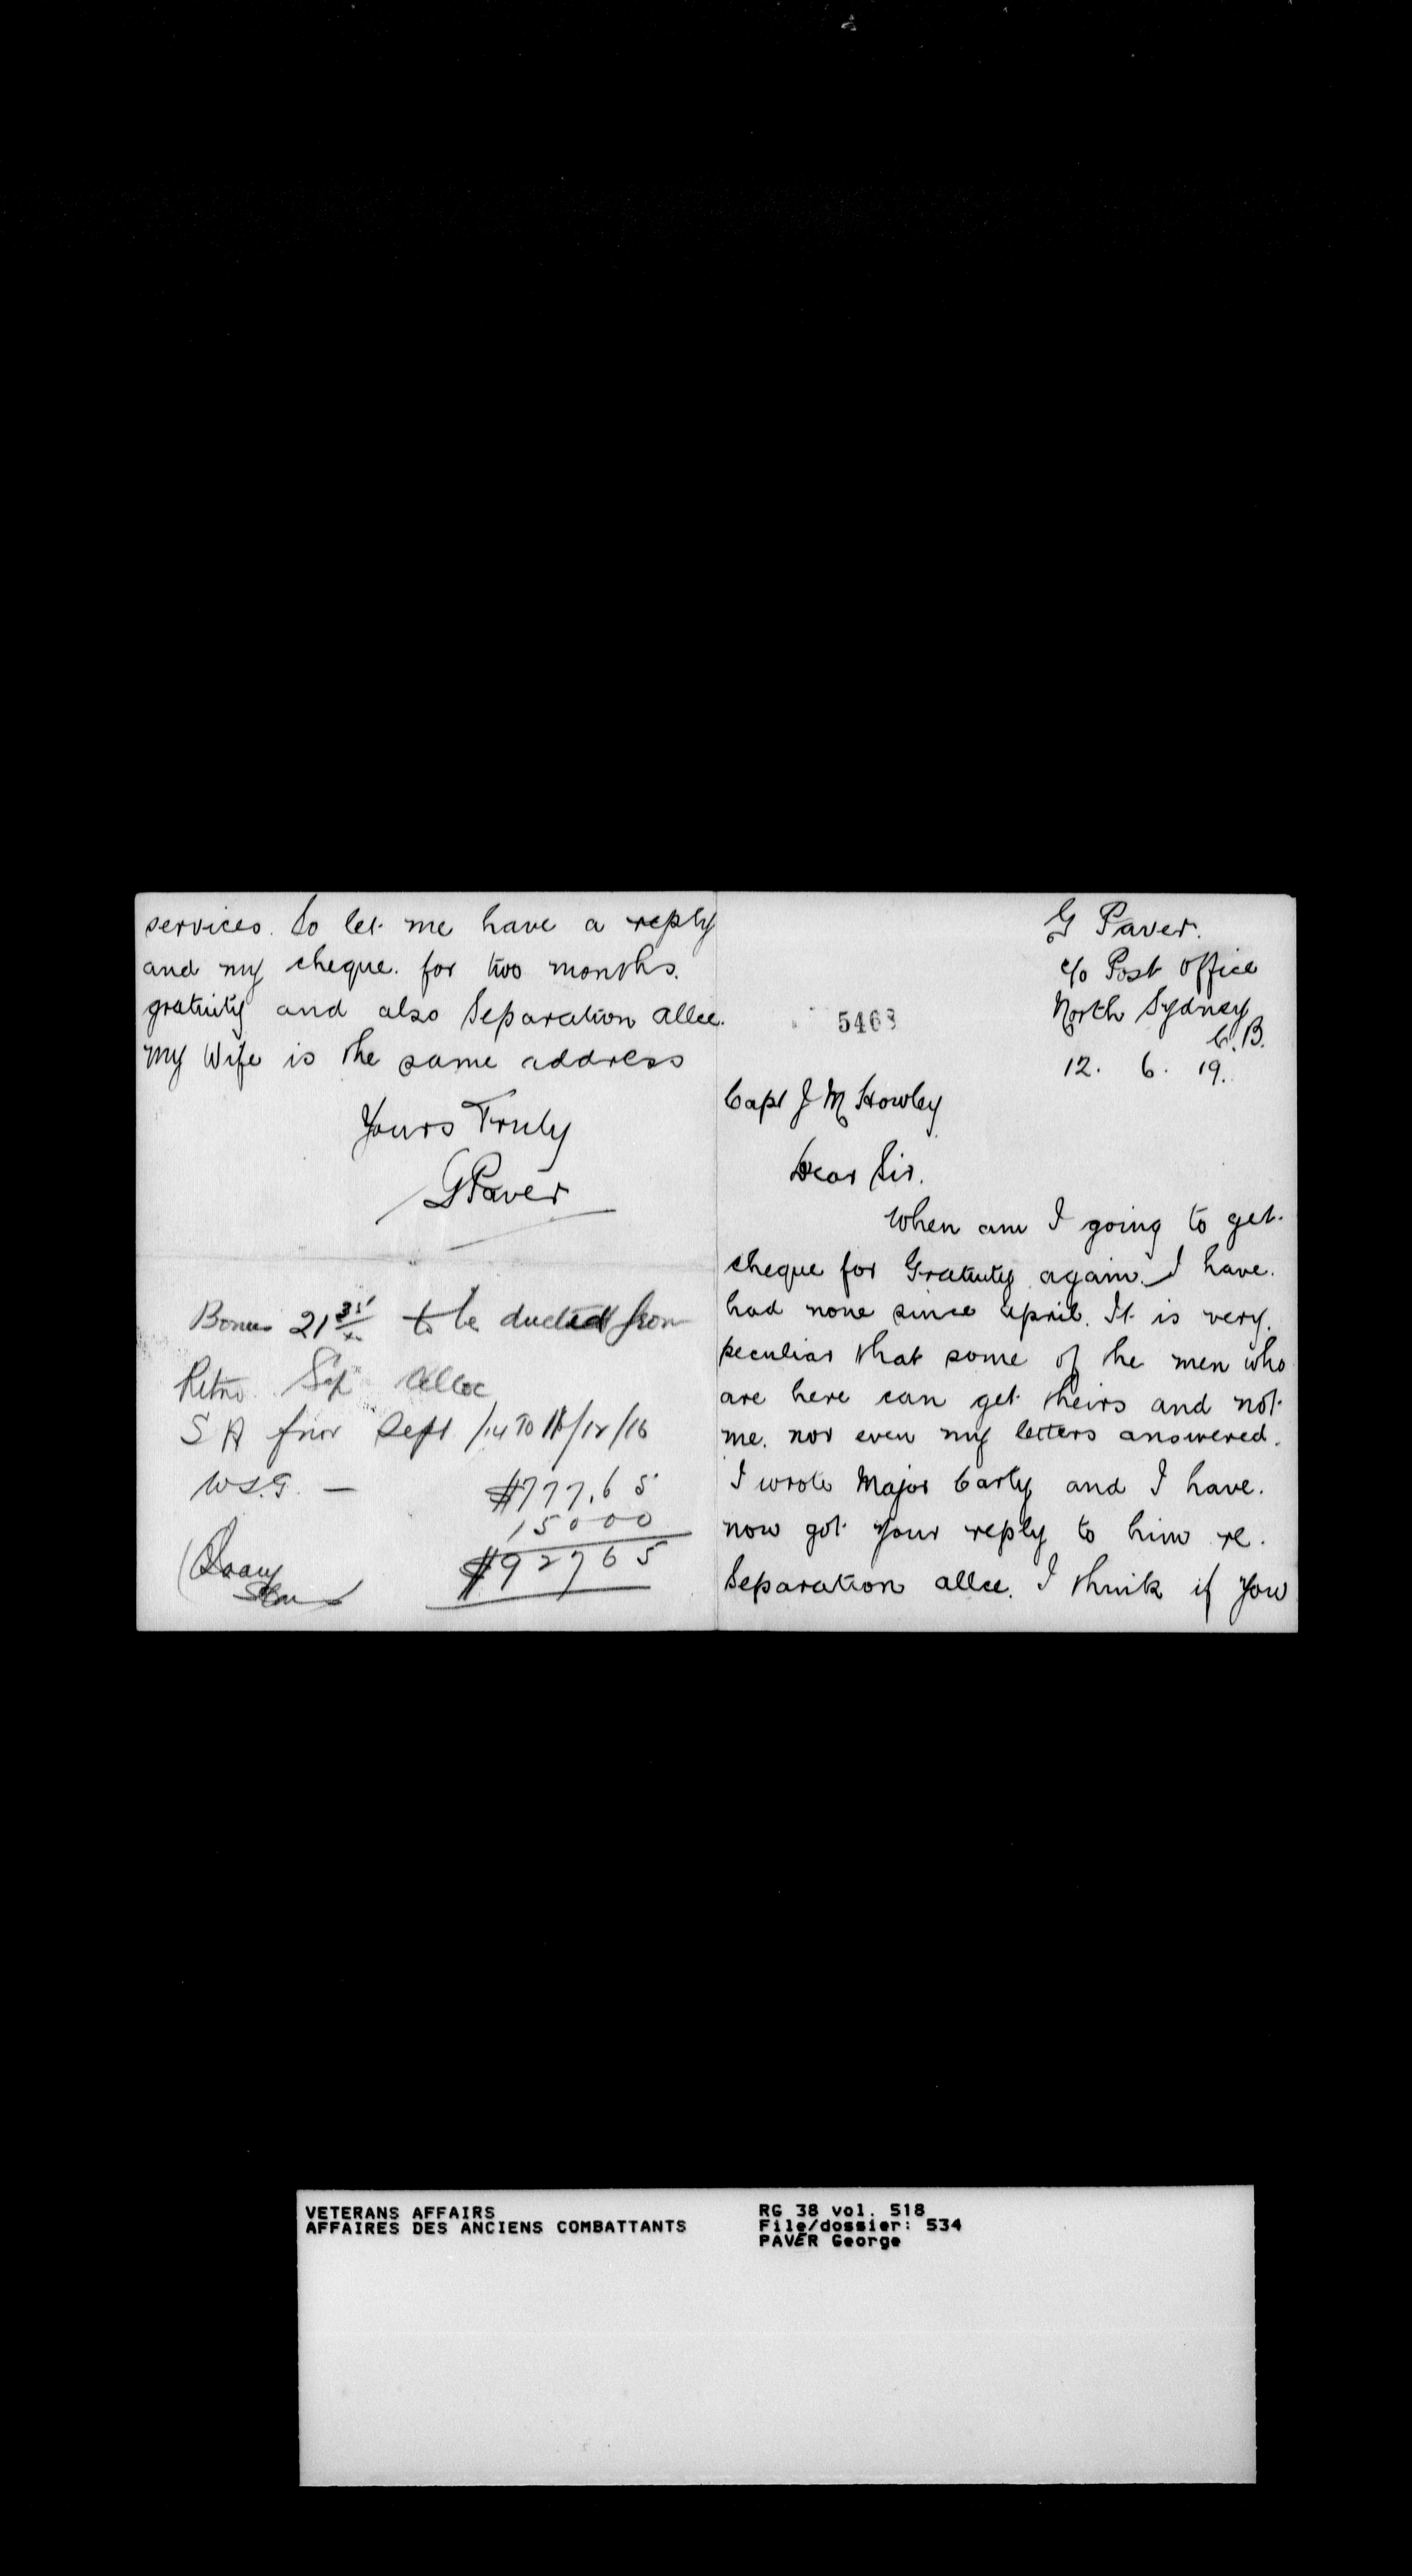 G Paver.
c/o Post Office
North Sydney
C.B.
5463
12. 6. 19.
Capt J M Howley
Dear Sir.
When am I going to get
cheque for Gratuity again. I have.
had none since april. It is very.
peculiar that some of he men who
are here can get theirs and not
me. nor even my letters answered.
I wrote Major Carty and I have.
now got your reply to him re.
Separation allce. I think if you
services. So let me have a reply
and my cheque. for two months.
gratuity and also Separation allce.
my Wife is the same address
Yours Truly
G Paver
Bonus 21 to be ducted from
Retro Sep alloc
S A from Sept /14 TO /12/16
W.S.G. — $777.65
150 00
$927 65
VETERANS AFFAIRS
AFFAIRES DES ANCIENS COMBATTANTS
RG 38 vol. 518
File/dossier: 534
PAVER George